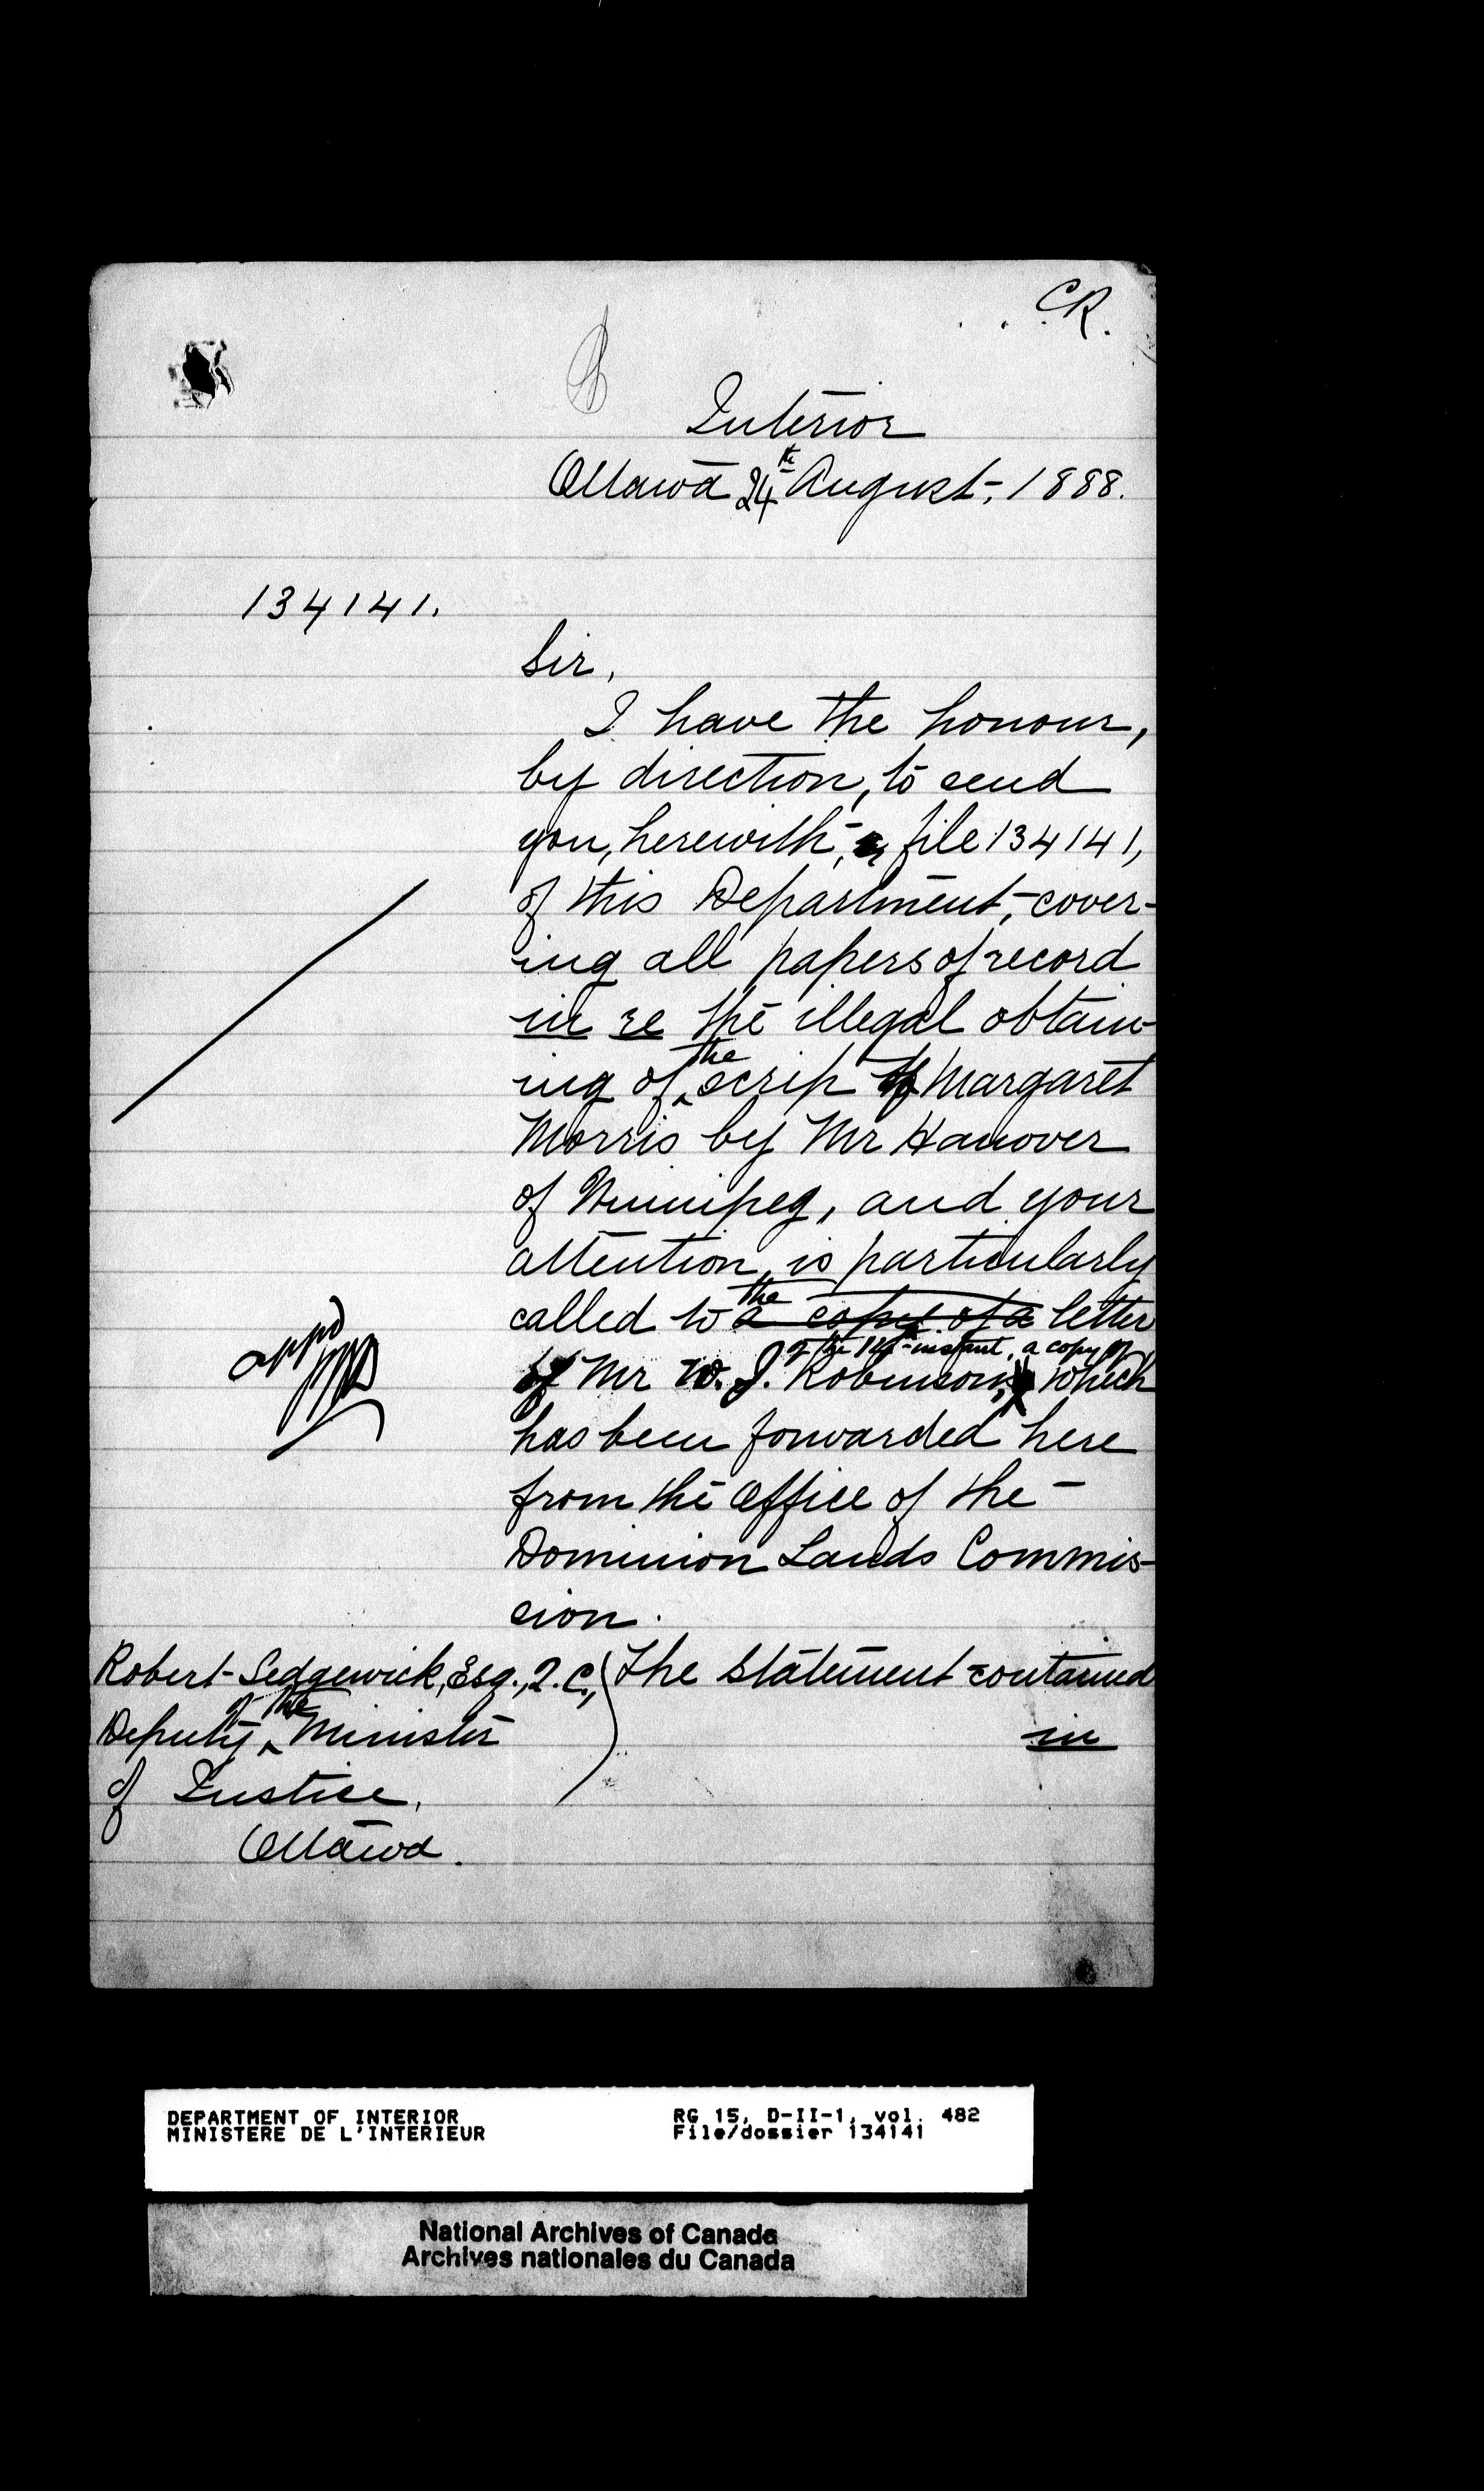 C.R.
Interior
Ottawa 24th August, 1888.
134141.
Sir,
I have the honour,
by direction, to send
you, herewith, file 134141,
of this Department, cover-
ing all papers of record
in re the illegal obtain-
the
ing of scrip of Margaret
Morris by Mr Hanover
of Winnipeg, and your
attention is particularly
the
called to a copy of a letter
of the instant, a copy of
of Mr W. J. Robinson, which
has been forwarded here
from the Office of the
Dominion Lands Commis-
sion.
Robert Sedgewick, Esq., Q.C., The statement contained
of the
Deputy Minister in
of Justice,
Ottawa.
appd
DEPARTMENT OF INTERIOR RG 15, D-II-1, vol. 482
MINISTERE DE L'INTERIEUR File/dossier 134141
National Archives of Canada
Archives nationales du Canada